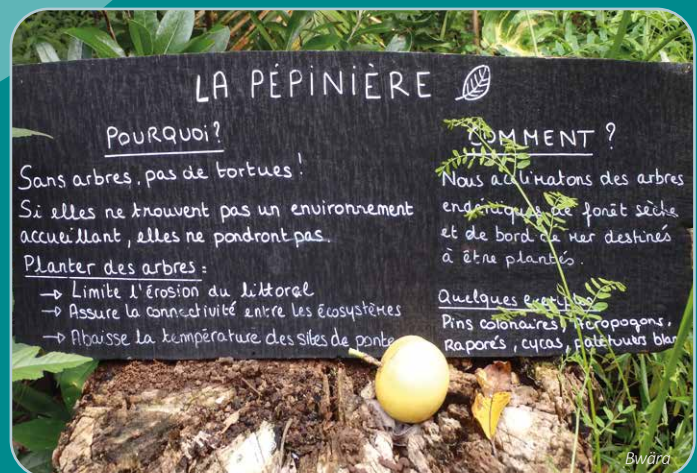 LA PÉPINIÈRE
POURQUOI?
Sans arbres, pas de tortues!
Si elles ne trouvent pas un environnement
accueillant, elles ne pondront pas.
Planter des arbres :
→ Limite l'érosion du littoral
→ Assure la connectivité entre les écosystèmes
→ Abaisse la température des sites de ponte
COMMENT ?
Nous acclimatons des arbres
endémiques de forêt sèche
et de bord de mer destinés
à être plantés.
Quelques exemples
Pins colonaires, Acropogons,
Raporés, cycas, palétuviers blan
Bwärä